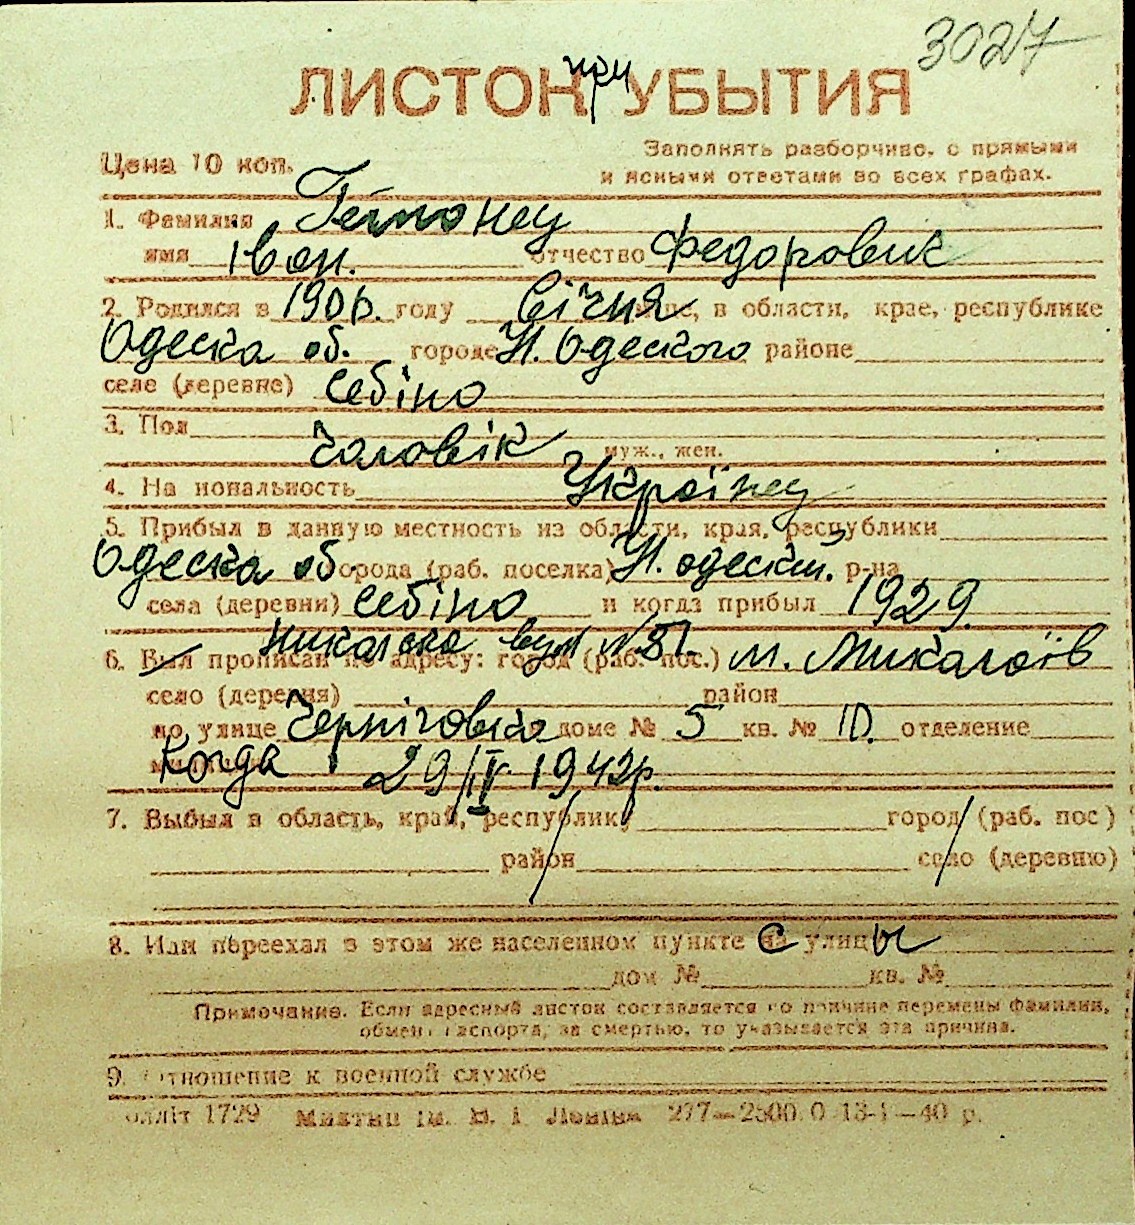 3027
ЛИСТОК при УБЫТИЯ
Цена 10 коп.
Заполнять разборчиво, с прямыми
и ясными ответами во всех графах.
1. Фамилия
имя Іван. отчество Федорович
2. Родился в 1906. году Січня, в области, крае, республике
Одеска об. городе Н. Одеского районе
селе (деревне) Себіно
3. Пол Чоловік муж., жен.
4. На иональность Українец
5. Прибыл в данную местность из области, края, республики
Одеска об. орода (раб. поселка) Н. одеский. р-на
села (деревни) Себіно и когда прибыл 1929.
вул №51.
6. Был прописан по адресу: город (раб. пос.) м. Миколаїв
село (деревня) район
по улице Черніговска доме № 5 кв. № 10. отделение
Когда 29/IV 1942р.
7. Выбыл в область, край, республику город (раб. пос)
район село (деревню)
8. Или переехал в этом же населенном пункте с улицы
дом № кв. №
Примечание. Если адресный листок составляется по причине перемены фамилии,
обмена паспорта, за смертью, то указывается эта причина.
9. Отношение к военной службе
олліт 1729 ім. В. І. Леніна 277—2500.0 13-I—40 р.